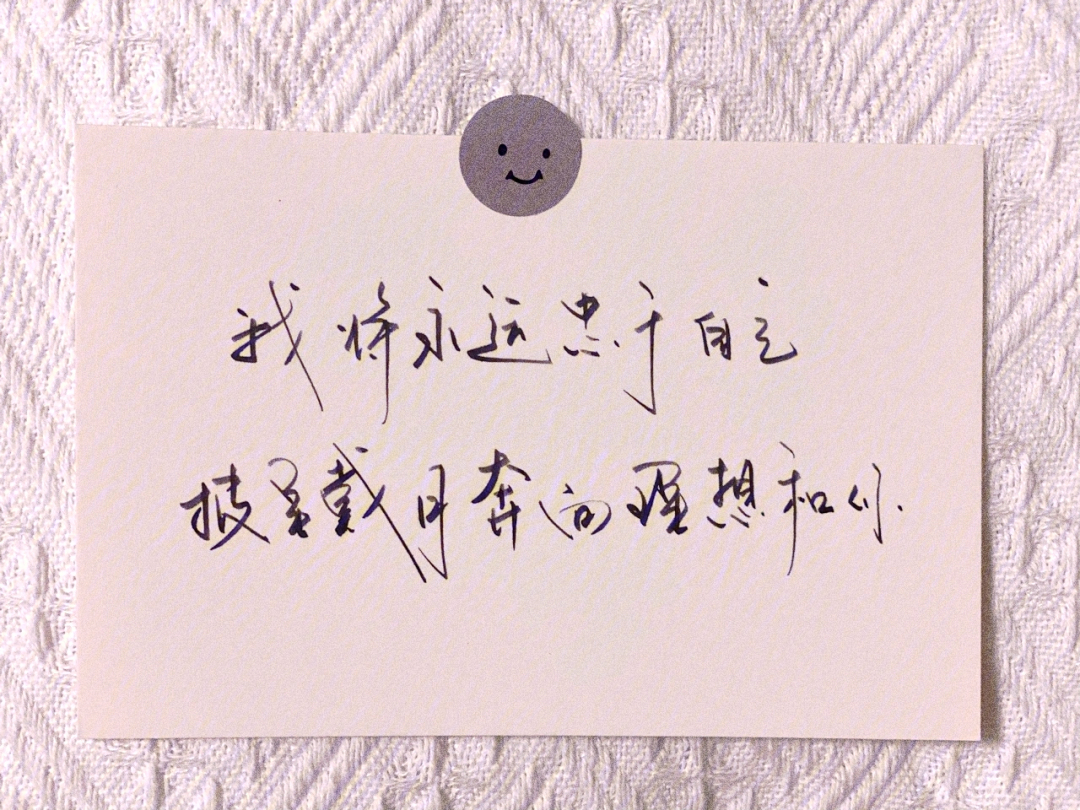 我将永远忠于自己
披星戴月奔向理想和你.